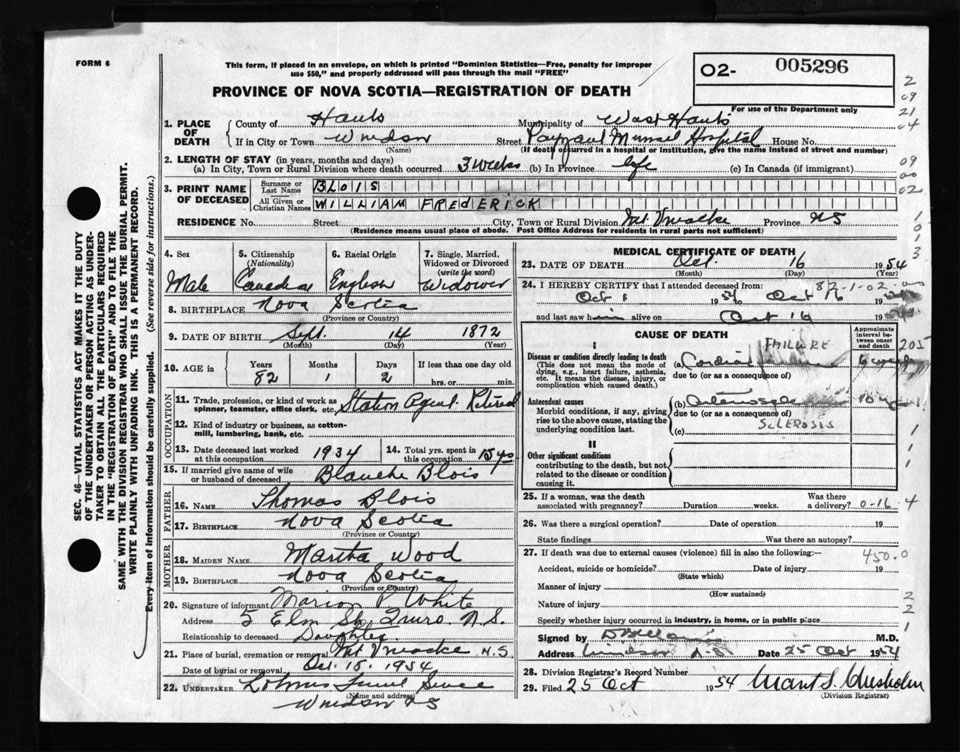 FORM 6
This form, if placed in an envelope, on which is printed "Dominion Statistics—Free, penalty for improper
use $50," and properly addressed will pass through the mail "FREE"
PROVINCE OF NOVA SCOTIA—REGISTRATION OF DEATH
02- 005296
For use of the Department only
1. PLACE OF DEATH
County of Hants Municipality of West Hants
If in City or Town Windsor Street Payzant Hospital House No.
(Name) (If death occurred in a hospital or institution, give the name instead of street and number)
2. LENGTH OF STAY (in years, months and days)
(a) In City, Town or Rural Division where death occurred 3 weeks (b) In Province life (c) In Canada (if immigrant)
3. PRINT NAME OF DECEASED
Surname or Last Name BLOIS
All Given or Christian Names WILLIAM FREDERICK
RESIDENCE No. Street City, Town or Rural Division Mt Uniacke Province NS
(Residence means usual place of abode. Post Office Address for residents in rural parts not sufficient)
4. Sex Male
5. Citizenship (Nationality)
6. Racial Origin English
7. Single, Married, Widowed or Divorced (write the word) Widower
8. BIRTHPLACE Nova Scotia
(Province or Country)
9. DATE OF BIRTH Sept. 14 1872
(Month) (Day) (Year)
10. AGE in Years 82 Months 1 Days 2 If less than one day
hrs. or min.
OCCUPATION
11. Trade, profession, or kind of work as spinner, teamster, office clerk, etc. Station Agent. Retired
12. Kind of industry or business, as cotton-mill, lumbering, bank, etc.
13. Date deceased last worked at this occupation 1934
14. Total yrs. spent in this occupation
15. If married give name of wife or husband of deceased Blanche Blois
FATHER
16. NAME Thomas Blois
17. BIRTHPLACE Nova Scotia
(Province or Country)
MOTHER
18. MAIDEN NAME Martha Wood
19. BIRTHPLACE Nova Scotia
(Province or Country)
20. Signature of informant Marion P. White
Address 5 Elm St. Truro, N.S.
Relationship to deceased Daughter
21. Place of burial, cremation or removal Mt Uniacke N.S
Date of burial or removal Oct. 18. 1954
22. UNDERTAKER
(Name and address)
Windsor NS
MEDICAL CERTIFICATE OF DEATH
23. DATE OF DEATH Oct. 16 1954
(Month) (Day) (Year)
24. I HEREBY CERTIFY that I attended deceased from: 82-1-02
Oct 1 1954 to Oct 16
and last saw him alive on Oct 16
CAUSE OF DEATH
Approximate interval between onset and death
I
Disease or condition directly leading to death
(This does not mean the mode of dying, e.g., heart failure, asthenia, etc. It means the disease, injury, or complication which caused death.)
(a) Cardiac FAILURE
due to (or as a consequence of)
Antecedent causes
Morbid conditions, if any, giving rise to the above cause, stating the underlying condition last.
(b)
due to (or as a consequence of)
SCLEROSIS
(c)
II
Other significant conditions
contributing to the death, but not related to the disease or condition causing it.
25. If a woman, was the death associated with pregnancy? Duration weeks. Was there a delivery? 0-16
26. Was there a surgical operation? Date of operation 19
State findings Was there an autopsy?
27. If death was due to external causes (violence) fill in also the following:— 450.0
Accident, suicide or homicide? Date of injury 19
(State which)
Manner of injury
(How sustained)
Nature of injury
Specify whether injury occurred in industry, in home, or in public place
Signed by M.D.
Address Windsor N.S Date 25 Oct 1954
28. Division Registrar's Record Number
29. Filed 25 Oct 1954 Chisholm
(Division Registrar)
SEC. 46—VITAL STATISTICS ACT MAKES IT THE DUTY
OF THE UNDERTAKER OR PERSON ACTING AS UNDER-
TAKER TO OBTAIN ALL THE PARTICULARS REQUIRED
IN THE "REGISTRATION OF DEATH" AND TO FILE THE
SAME WITH THE DIVISION REGISTRAR WHO SHALL ISSUE THE BURIAL PERMIT.
WRITE PLAINLY WITH UNFADING INK. THIS IS A PERMANENT RECORD.
Every item of information should be carefully supplied. (See reverse side for instructions.)
2
09
21
04
09
00
02
1
0
1
3
205
1
1
1
4
2
2
1